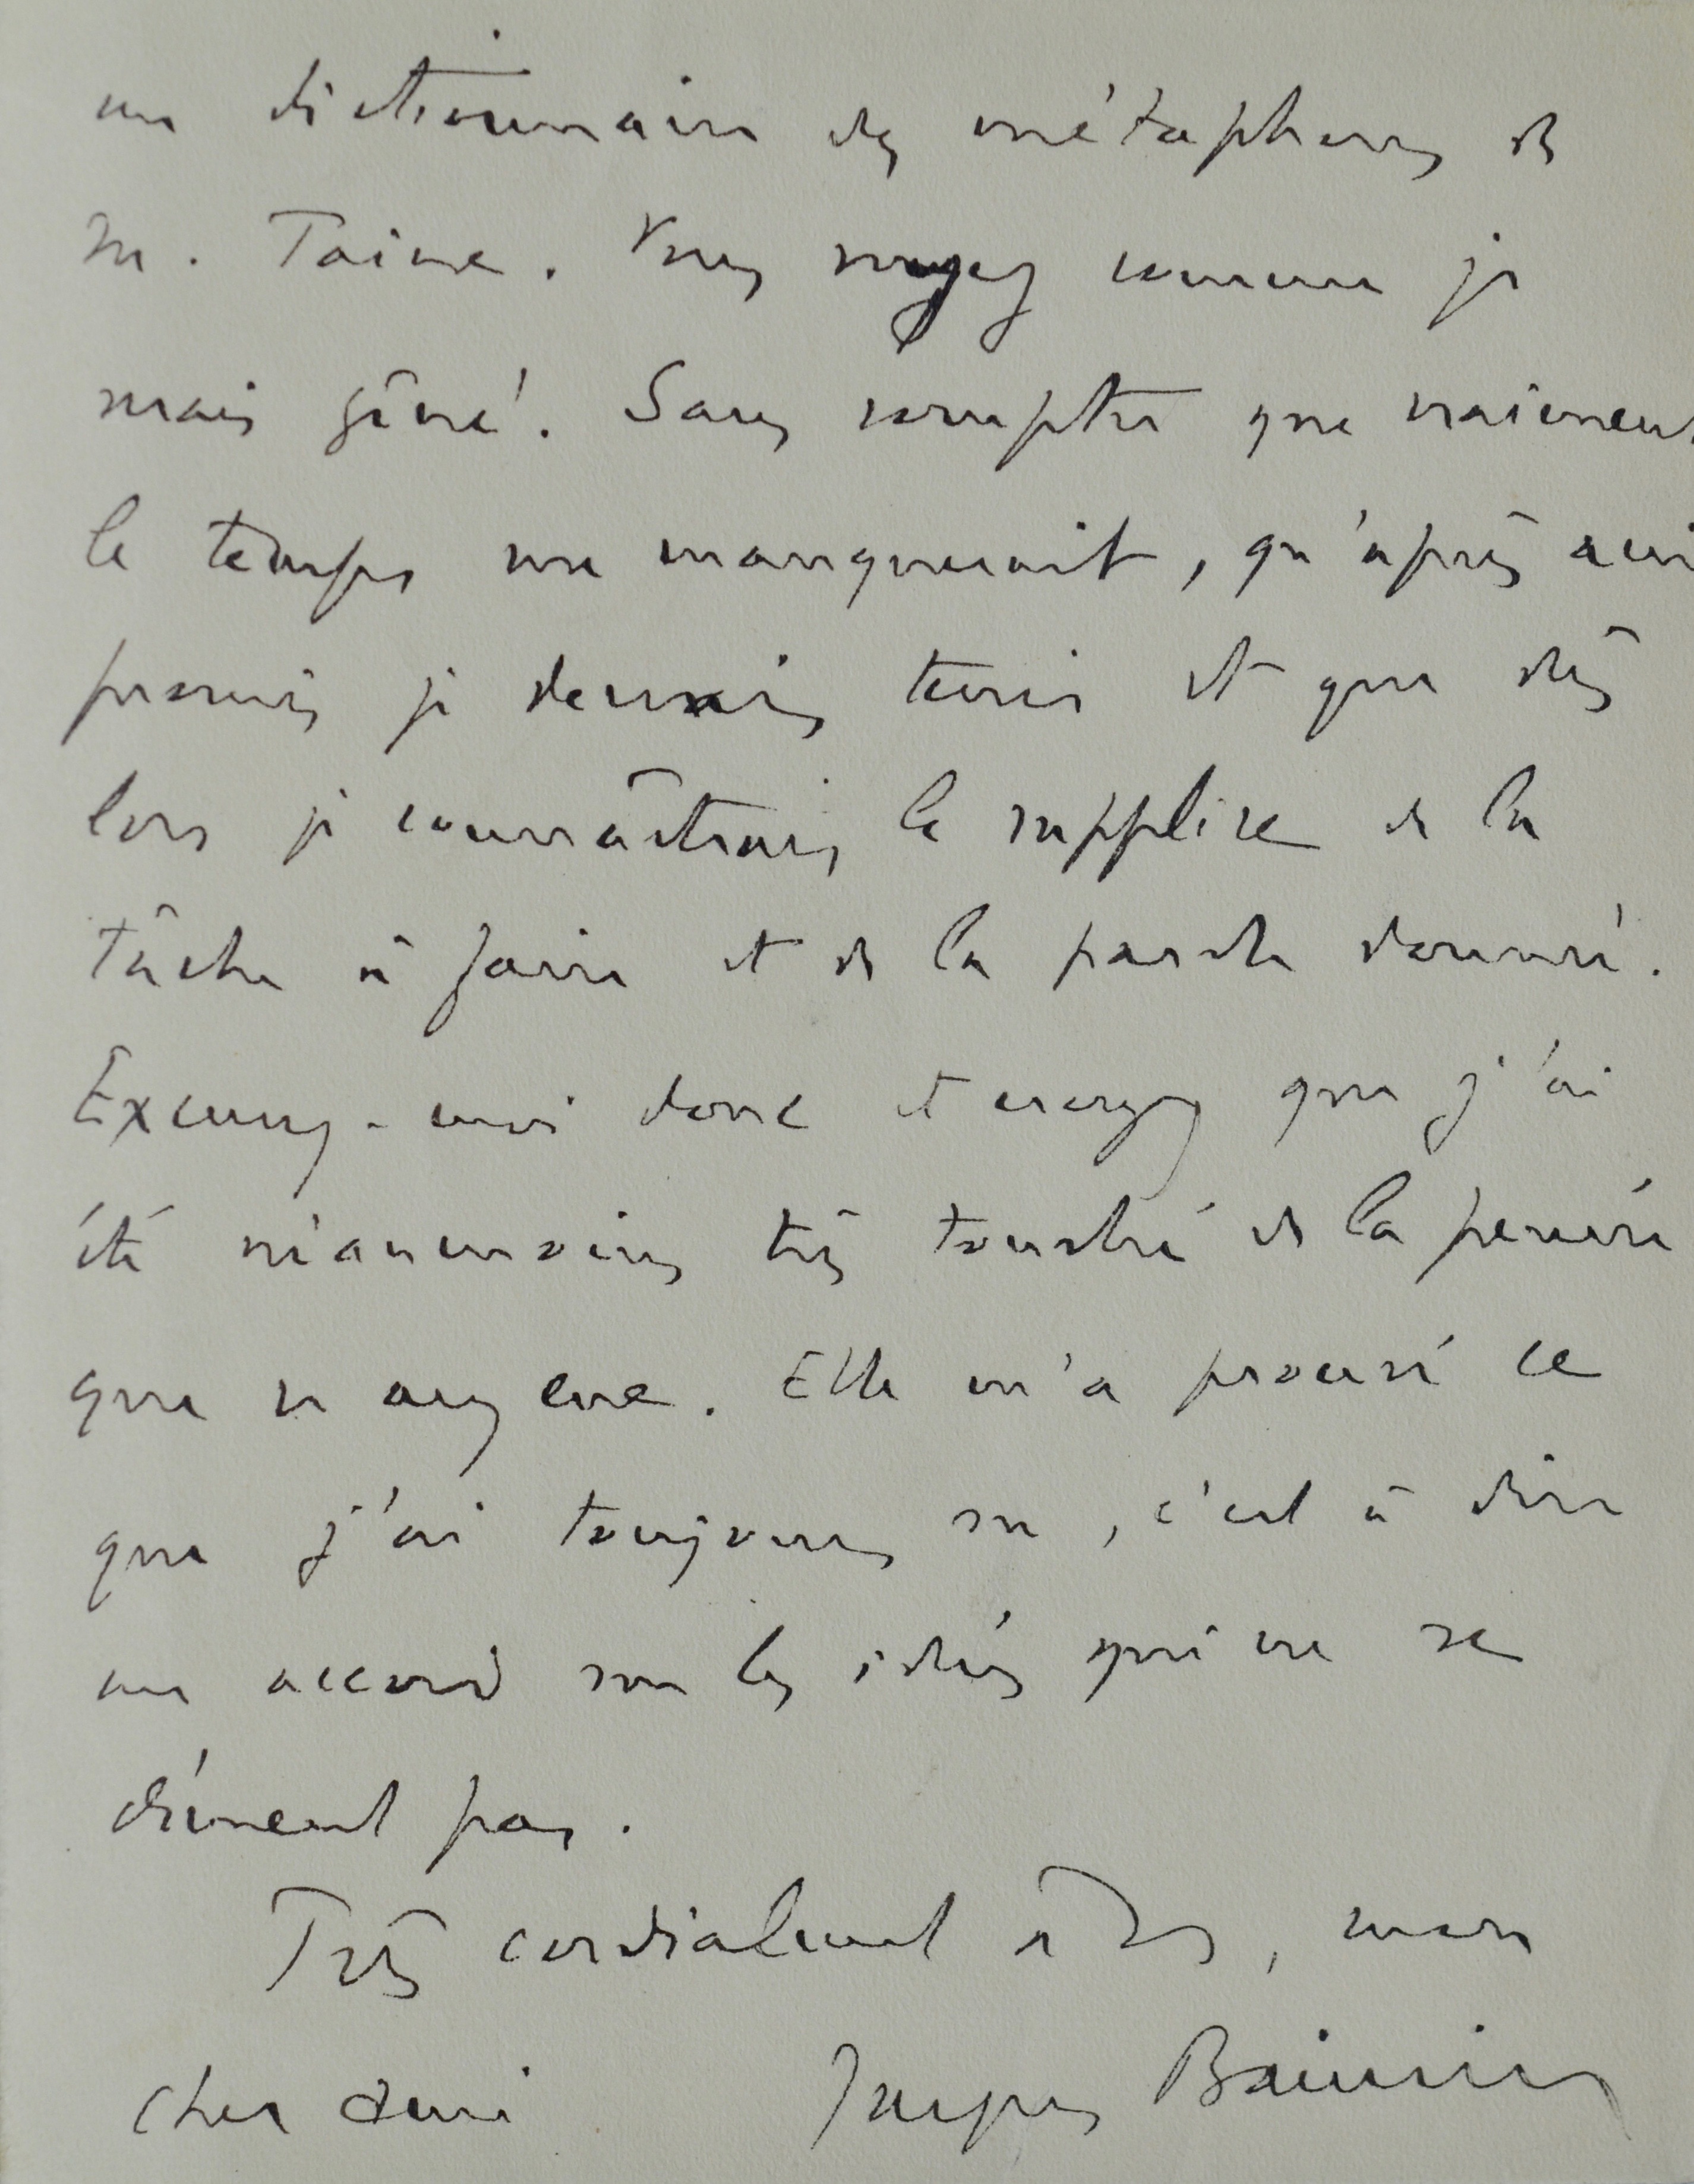 un dictionnaire des métaphores de
M. Taine. Vous voyez comme je
serais gêné. Sans compter que vraiment
le temps me manquerait, qu'après avoir
promis je devrais tenir et que dès
lors je connaîtrais le supplice de la
tâche à faire et de la parole donnée.
Excusez-moi donc et croyez que j'ai
été néanmoins très touché de la pensée
que vous avez eue. Elle m'a prouvé ce
que j'ai toujours su, c'est à dire
un accord sur les idées qui ne se
dément pas.
Très cordialement à vous, mon
cher ami Jacques Bainville